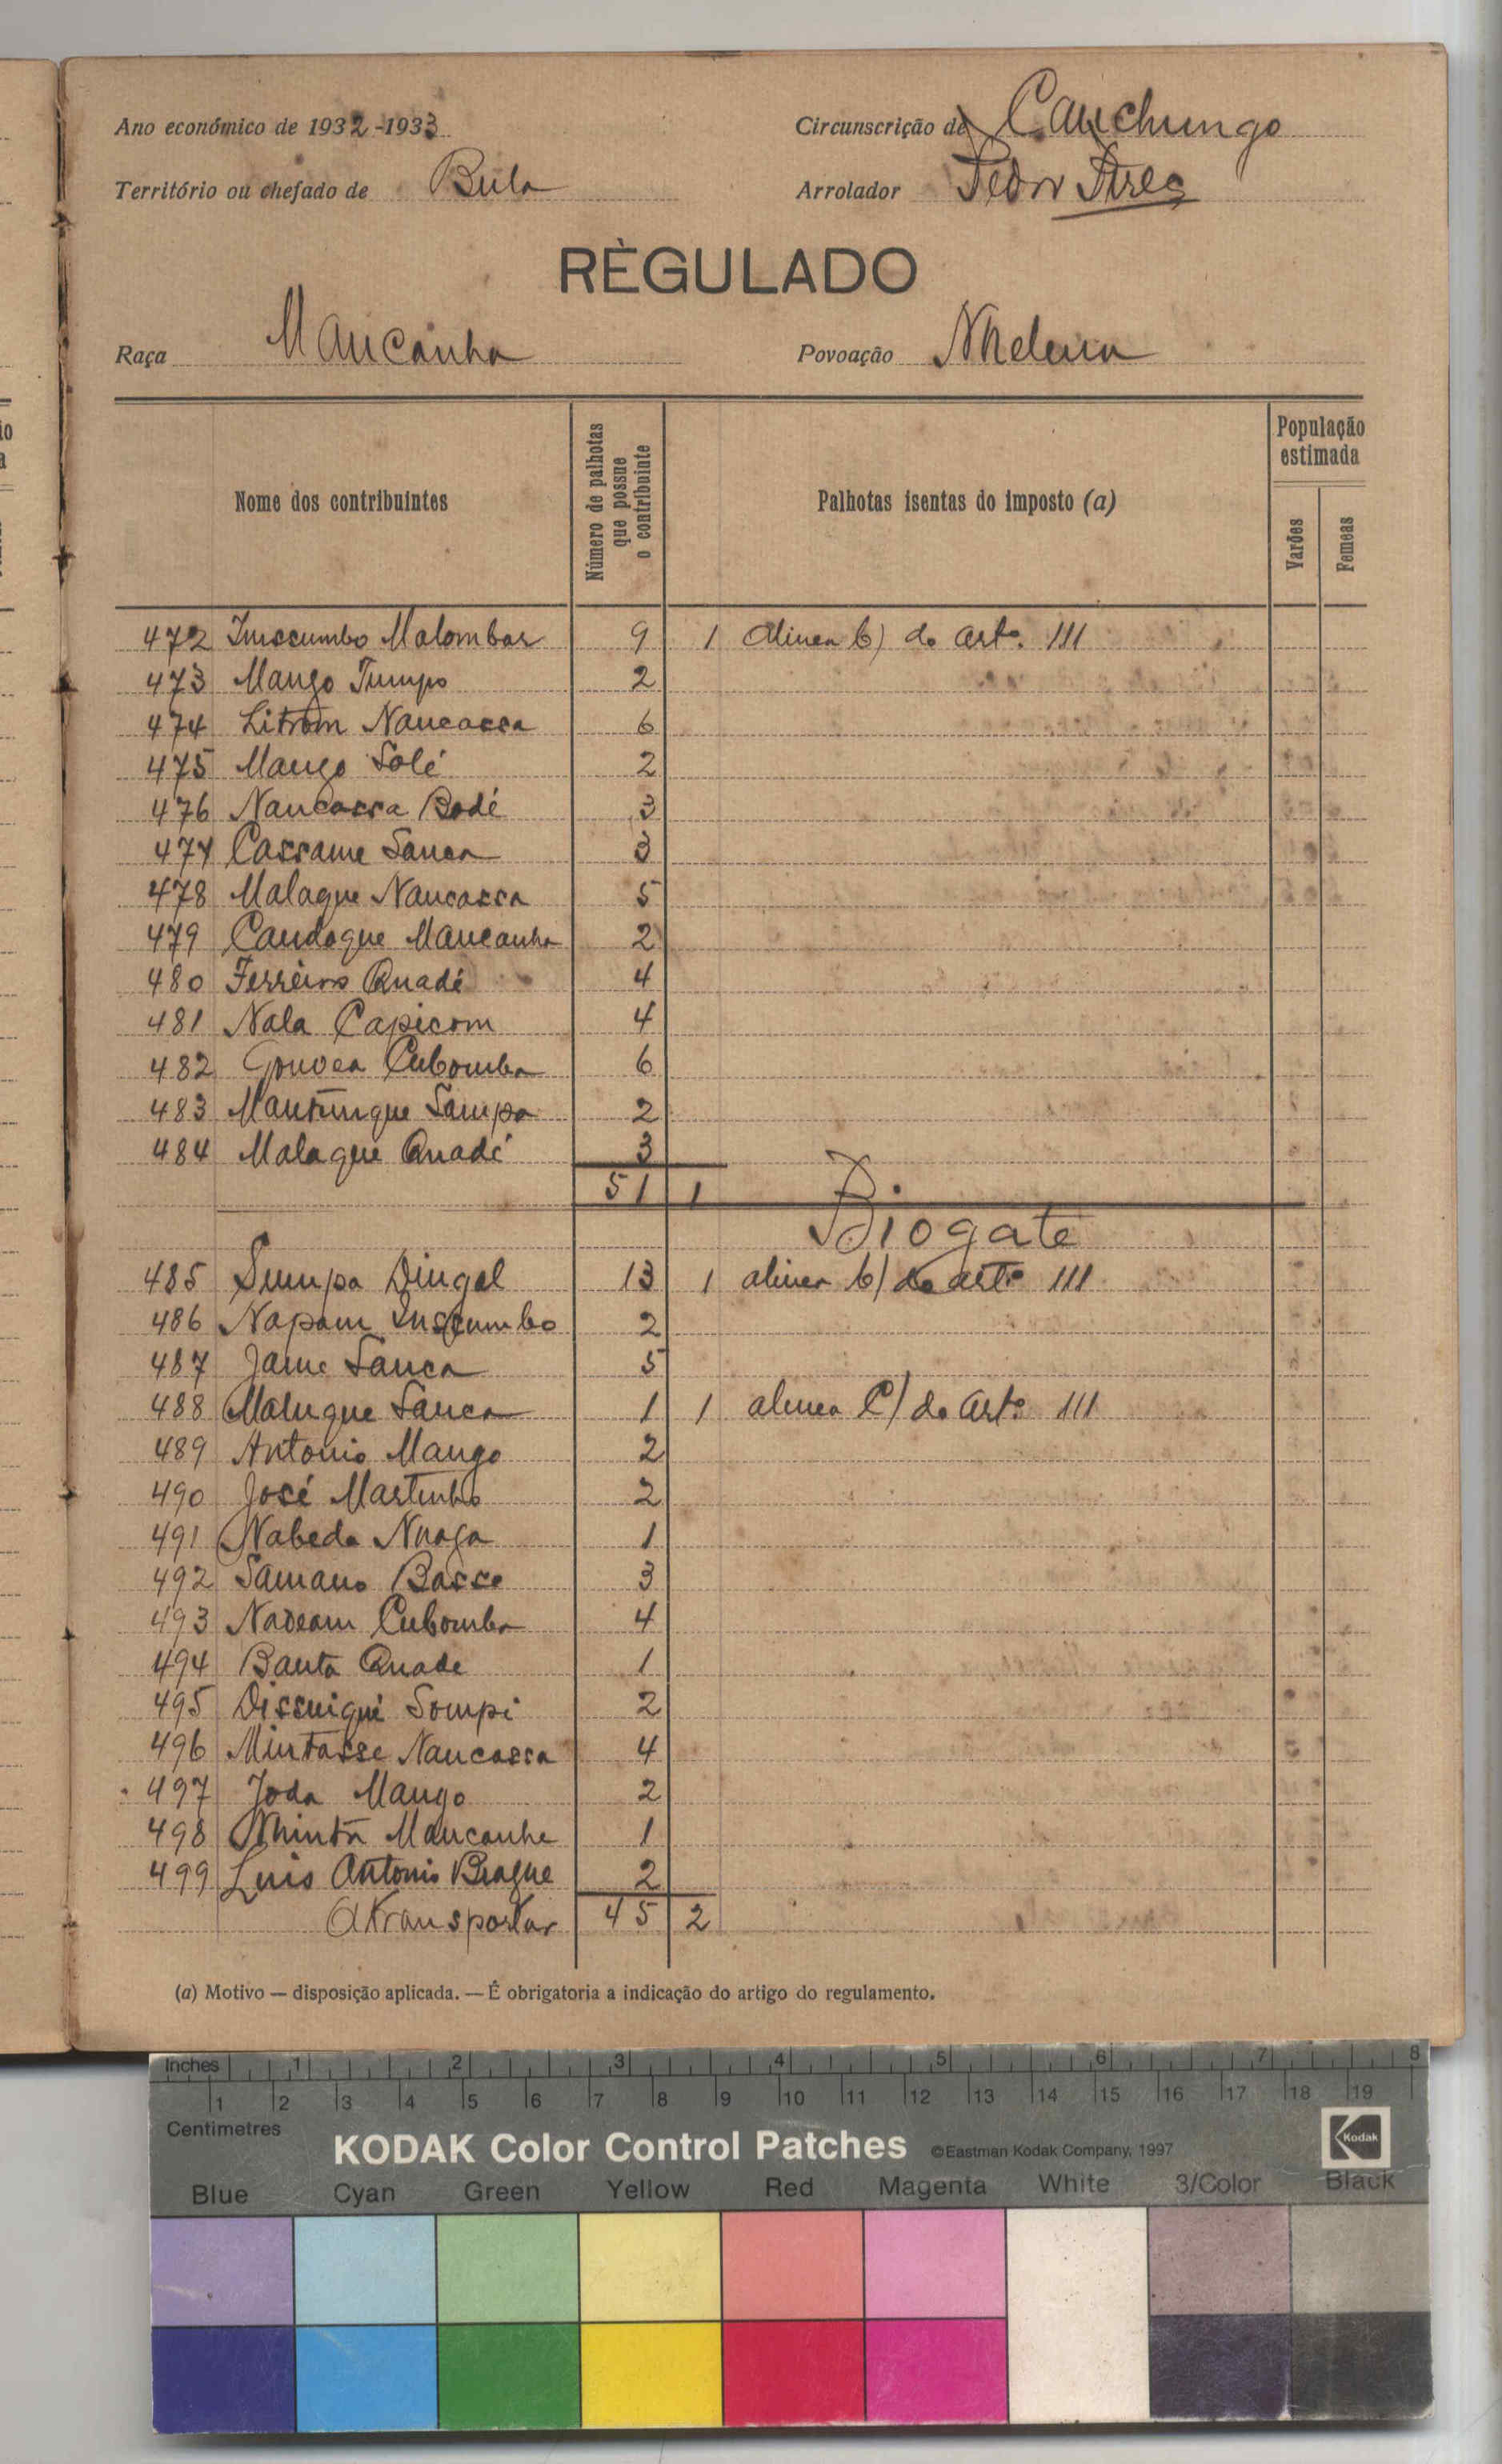 Ano económico de 1932-1933
Circunscrição de Canchungo
Território ou chefado de Bula
Arrolador
RÈGULADO
Raça Mancanha
Povoação
Nome dos contribuintes
Número de palhotas que possue o contribuinte
Palhotas isentas do imposto (a)
População estimada
Varões
Femeas
472 Inscumbo Malombar 9 1 Alinea b) do artº. 111
473 Mango Tumpo 2
474 Litrom Nancassa 6
475 Mango Solé 2
476 Nancassa Bodé 3
477 Cassame Sanca 3
478 Malague Nancassa 5
479 Candague Mancanha 2
480 Ferreiro Quadé 4
481 Nala Capicom 4
482 Gouvea Cubomba 6
483 Mantungue Sampa 2
484 Malague Quadé 3
51 1
P.
Biogate
485 Sumpa Dingal 13 1 alinea b) do artº 111
486 Napam Inscumbo 2
487 Jame Sanca 5
488 Malugue Sanca 1 1 alinea C) do artº 111
489 Antonio Mango 2
490 José Martinho 2
491 Nabeda Nuaga 1
492 Samano Basse 3
493 Nadeam Cubomba 4
494 Banta Quade 1
495 Dissuiqui Sompi 2
496 Mintasse Nancassa 4
497 Joda Mango 2
498 Nhinta Mancanhe 1
499 Luis Antonio 2
A transportar 45 2
(a) Motivo — disposição aplicada. — É obrigatoria a indicação do artigo do regulamento.
Inches 1 2 3 4 5 6 7 8
1 2 3 4 5 6 7 8 9 10 11 12 13 14 15 16 17 18 19
Centimetres
KODAK Color Control Patches ©Eastman Kodak Company, 1997 Kodak
Blue Cyan Green Yellow Red Magenta White 3/Color Black